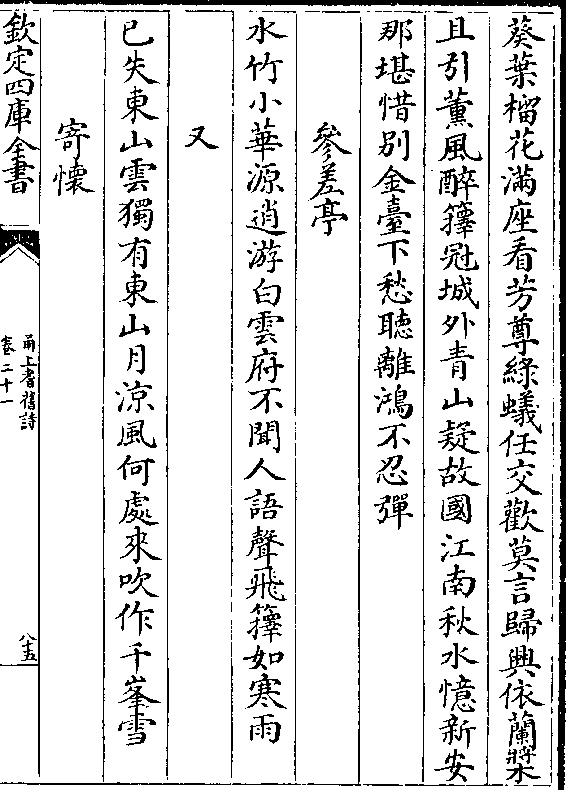 葵葉榴花滿座看芳尊綠蟻任交歡莫言歸興依蘭槳
且引薰風醉籜冠城外青山疑故國江南秋水憶新安
那堪惜别金臺下愁聽離鴻不忍彈
參差亭
水竹小華源逍游白雲府不聞人語聲飛籜如寒雨
又
已失東山雲獨有東山月涼風何處來吹作千峯雪
寄懷
欽定四庫全書
甬上耆舊詩
卷二十一
八五